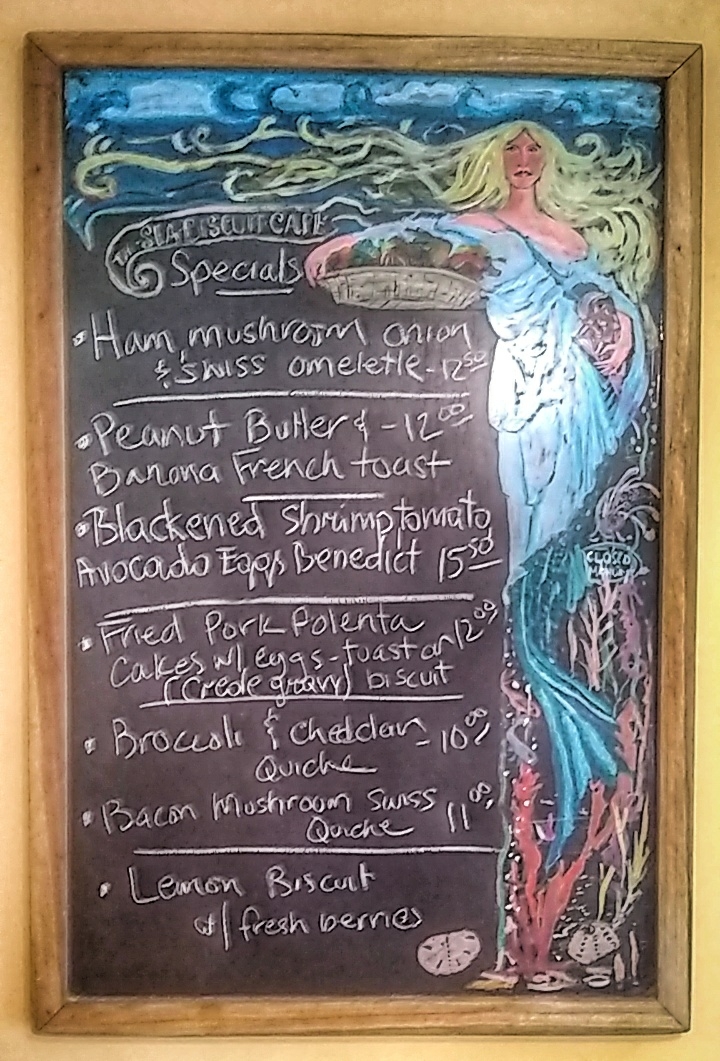 The SEA BISCUIT CAFE
Specials
• Ham, mushroom onion
& swiss omelette - 12 50
• Peanut Butter & - 12 00
Banana French toast
• Blackened shrimp, tomato,
Avocado Eggs Benedict 15 50
• Fried Pork Polenta 12 00
Cakes w/ eggs - toast or
(Creole gravy) biscuit
• Broccoli & Cheddar - 10 00
Quiche
• Bacon Mushroom Swiss 11 00
Quiche
• Lemon Biscuit
w/ fresh berries
CLOSED
MONDAY